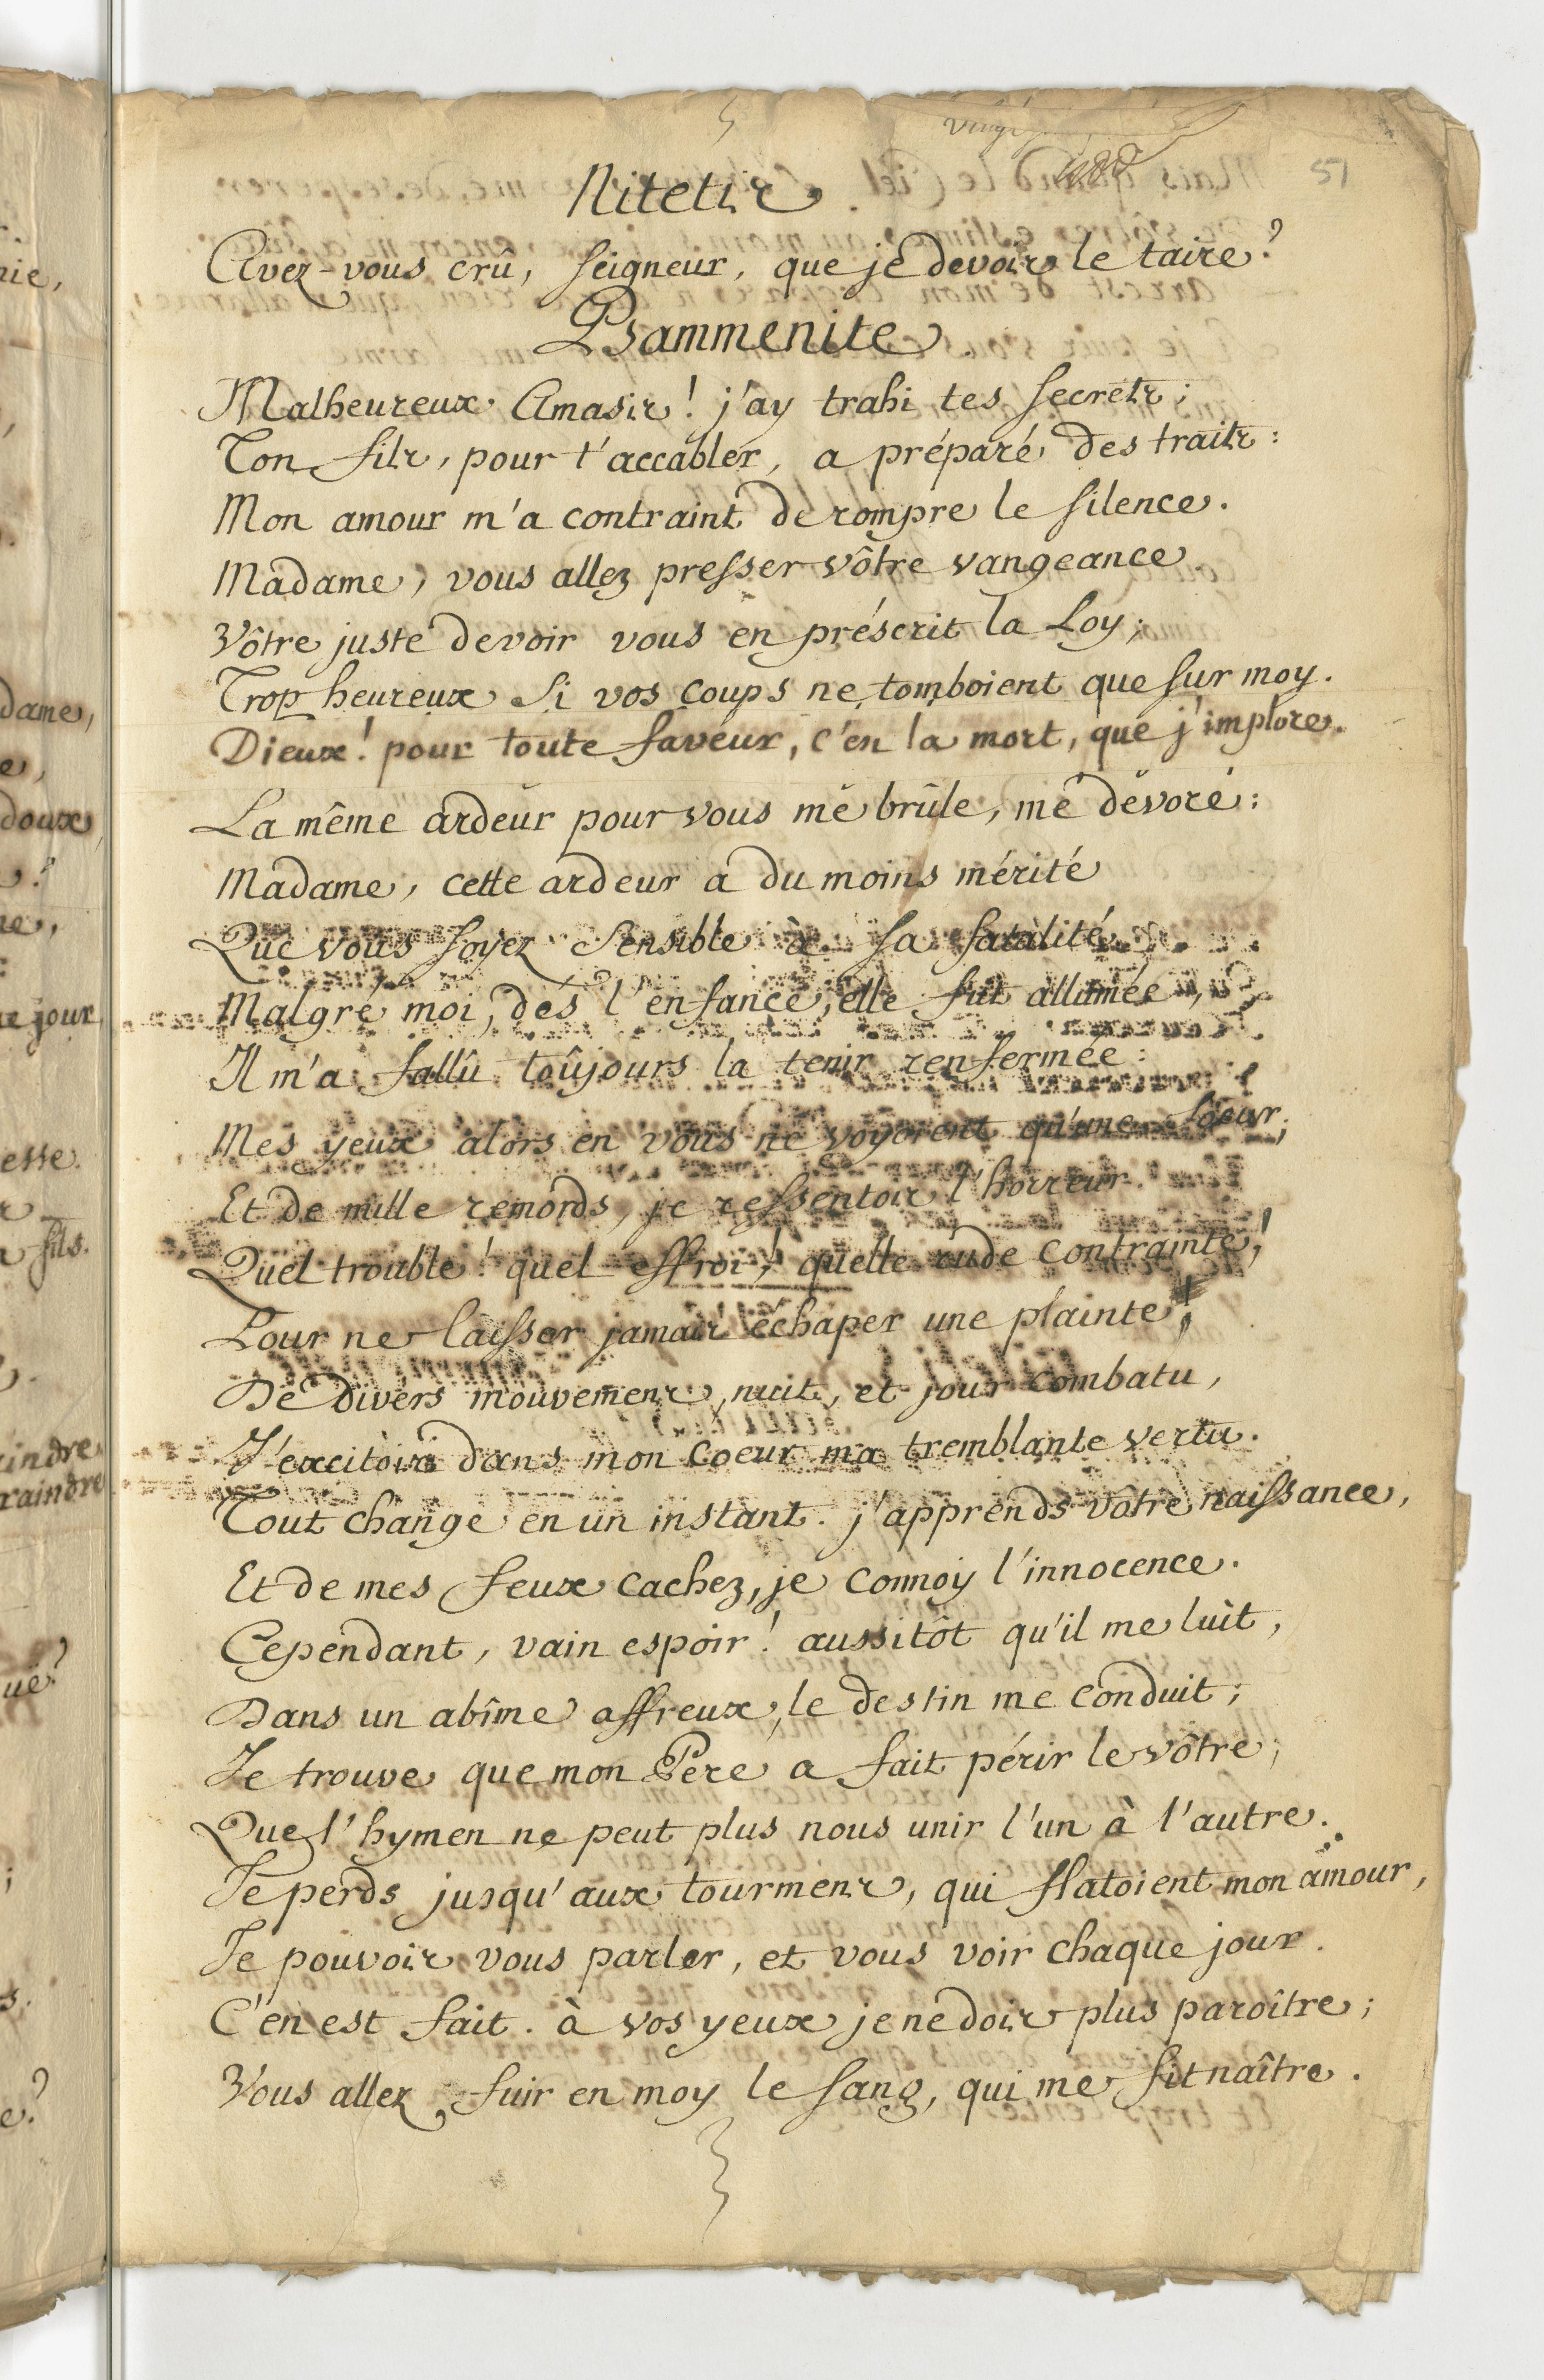 51
Nitetis.
Avez-vous crû, Seigneur, que je devois le taire?
Psammenite.
Malheureux Amasis! j'ay trahi tes secrets;
Ton fils, pour t'accabler, a préparé des traits:
Mon amour m'a contraint de rompre le silence.
Madame, vous allez presser vôtre vangeance.
Vôtre juste devoir vous en préscrit la Loy;
Trop heureux si vos coups ne tomboient que sur moy.
Dieux! pour toute faveur, c'en la mort, que j'implore.
La même ardeur pour vous me brûle, me dévore:
Madame, cette ardeur a du moins mérité
Que vous soyez sensible à sa fatalité.
Malgré moi, des l'enfance, elle fut allumée,
Il m'a fallû toûjours la tenir renfermée:
Mes yeux alors en vous ne voyoient qu'une soeur;
Et de mille remords, je ressentois l'horreur.
Quel trouble! quel effroi! quelle rude contrainte!
Pour ne laisser jamais échaper une plainte!
De divers mouvemens, nuit, et jour combatu,
J'excitois dans mon coeur ma tremblante vertu.
Tout change en un instant. j'apprends vôtre naissance,
Et de mes feux cachez, je connoy l'innocence.
Cependant, vain espoir! aussitôt qu'il me luit,
Dans un abîme affreux, le destin me conduit;
Je trouve que mon Pere a fait périr le vôtre;
Que l'hymen ne peut plus nous unir l'un à l'autre.
Je perds jusqu'aux tourmens, qui flatoient mon amour,
Je pouvois vous parler, et vous voir chaque jour.
C'en est fait. à vos yeux je ne dois plus paroître;
Vous allez fuir en moy le sang, qui me fit naître.